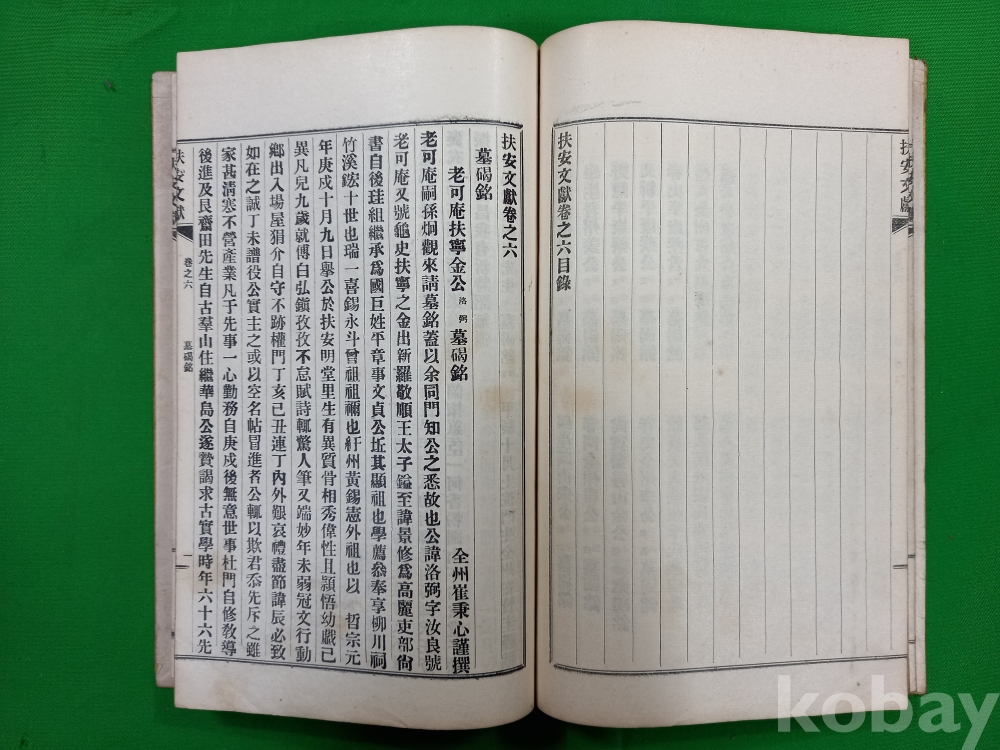 扶安文獻
扶安文獻卷之六目錄
扶安文獻卷之六
墓碣銘
老可庵扶寧金公洛弼墓碣銘
全州崔秉心謹撰
老可庵嗣孫炯觀來請墓銘蓋以余同門知公之悉故也公諱洛弼字汝良號
老可庵又號龜史扶寧之金出新羅敬順王太子鎰至諱景修爲高麗吏部尙
書自後珪組繼承爲國巨姓平章事文貞公坵其顯祖也學薦叅奉享柳川祠
竹溪鋐十世也瑞一喜錫永斗曾祖祖禰也紆州黃錫憲外祖也以 哲宗元
年庚戌十月九日擧公於扶安明堂里生有異質骨相秀偉性且頴悟幼戲已
異凡兒九歲就傅白弘鎭孜孜不怠賦詩輒驚人筆又端妙年未弱冠文行動
鄕出入場屋狷介自守不跡權門丁亥已丑連丁內外艱哀禮盡節諱辰必致
如在之誠丁未譜役公實主之或以空名帖冒進者公輒以欺君忝先斥之雖
家甚淸寒不營產業凡于先事一心勤務自庚戌後無意世事杜門自修敎導
後進及艮齋田先生自古羣山住繼華島公遂贊謁求古實學時年六十六先
扶安文獻
卷之六
墓碣銘
一
kobay